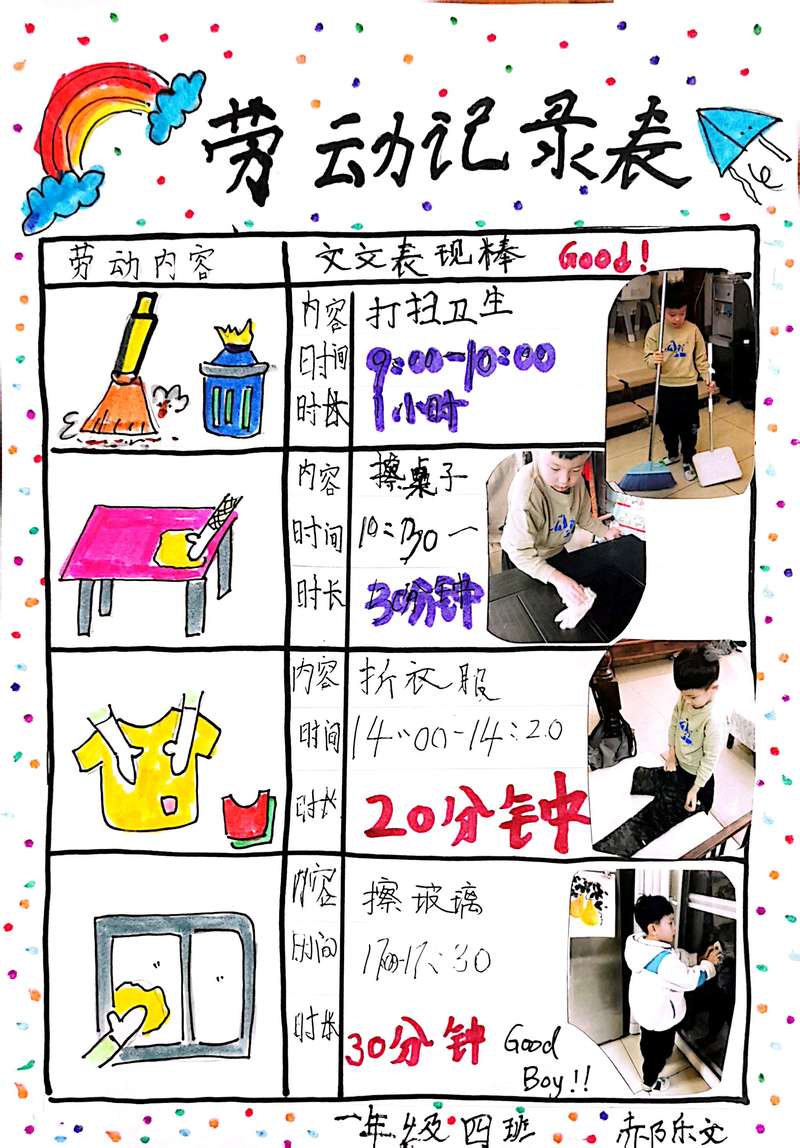 劳动记录表
劳动内容
文文表现棒 Good!
内容 打扫卫生
时间 9:00-10:00
时长 1小时
内容 擦桌子
时间 10:30一
时长 30分钟
内容 折衣服
时间 14:00-14:20
时长 20分钟
内容 擦玻璃
时间 17:30
时长 30分钟
Good
Boy!!
一年级四班 乐文